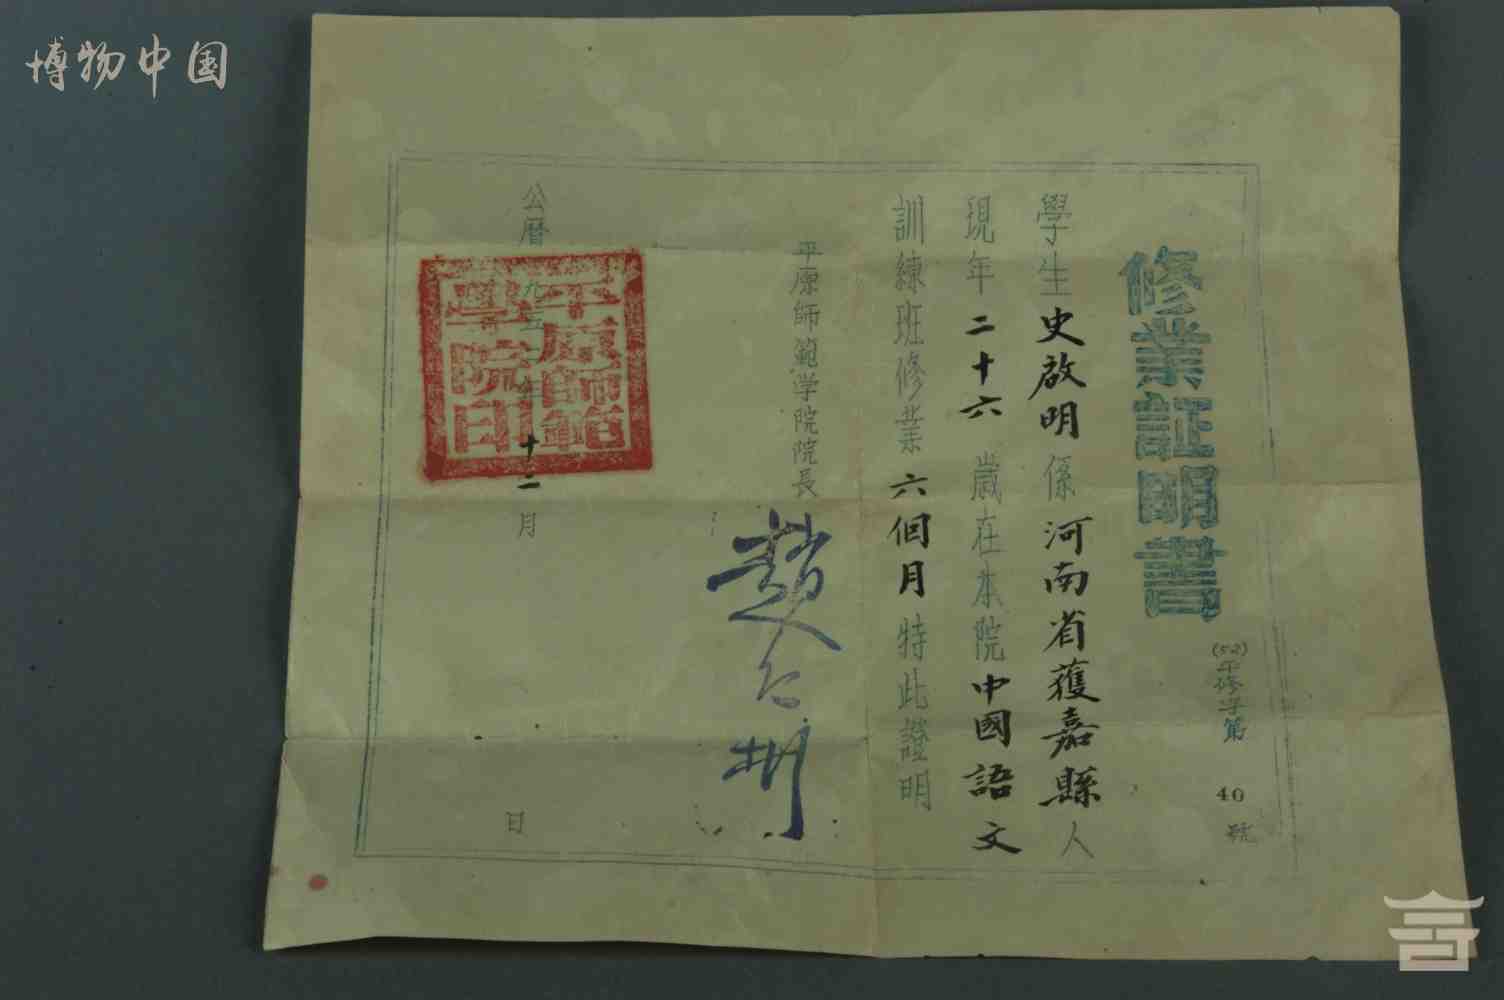 博物中国
修業証明書
(52)平修字第 40 號
學生史啟明係河南省獲嘉縣人
現年二十六歲在本院中國語文
訓練班修業六個月特此證明
平原師範学院院長
趙
公曆 九五 年十二月 日
平原師範
學院印